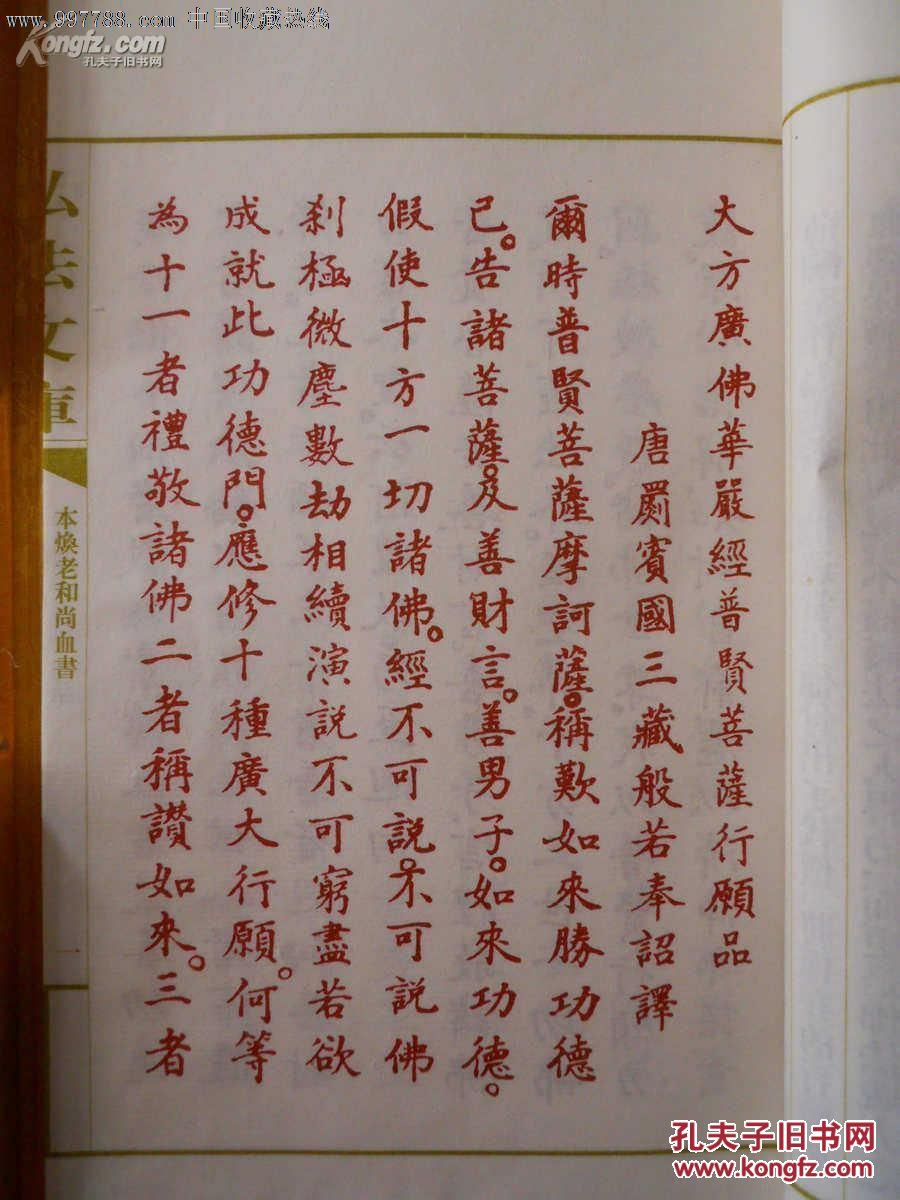 www.997788.com 中国收藏热线
Kongfz.com
孔夫子旧书网
大方廣佛華嚴經普賢菩薩行願品
唐罽賓國三藏般若奉詔譯
爾時普賢菩薩摩訶薩。稱歎如來勝功德
已。告諸菩薩。及善財言。善男子。如來功德。
假使十方一切諸佛。經不可說。不可說佛
刹極微塵數劫相續演說不可窮盡若欲
成就此功德門。應修十種廣大行願。何等
為十一者禮敬諸佛二者稱讃如來。三者
弘法文庫
本煥老和尚血書
一
孔夫子旧书网
www.kongfz.com